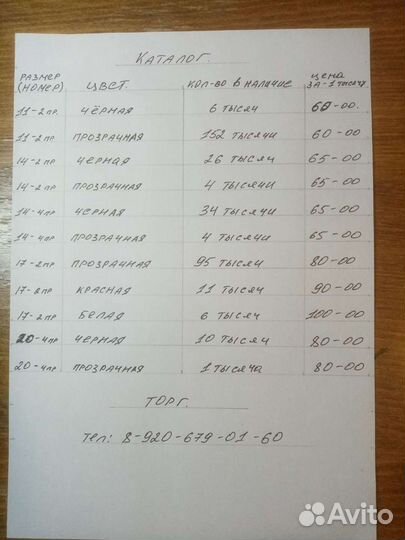 КАТАЛОГ.
РАЗМЕР (НОМЕР) ЦВЕТ. КОЛ-ВО В НАЛИЧИЕ ЦЕНА ЗА-1 ТЫСЯЧУ
11-2 ПР. ЧЁРНАЯ 6 ТЫСЯЧ 60-00.
11-2 ПР ПРОЗРАЧНАЯ 152 ТЫСЯЧИ 60-00
14-2 ПР ЧЕРНАЯ 26 ТЫСЯЧ 65-00
14-2 ПР ПРОЗРАЧНАЯ 4 ТЫСЯЧИ 65-00
14-4ПР ЧЕРНАЯ 34 ТЫСЯЧИ 65-00
14-4ПР ПРОЗРАЧНАЯ 4 ТЫСЯЧИ 65-00
17-2 ПР ПРОЗРАЧНАЯ 95 ТЫСЯЧ 80-00
17-2 ПР КРАСНАЯ 11 ТЫСЯЧ 90-00
17-2 ПР БЕЛАЯ 6 ТЫСЯЧ 100-00
20-4ПР ЧЕРНАЯ 10 ТЫСЯЧ 80-00
20-4ПР ПРОЗРАЧНАЯ 1 ТЫСЯЧА 80-00
ТОРГ.
ТЕЛ: 8-920-679-01-60
Avito